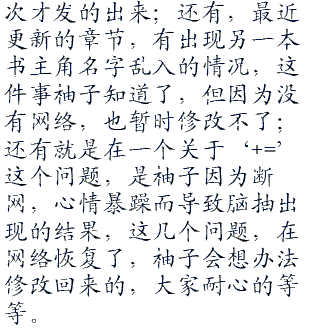 次才发的出来；还有，最近
更新的章节，有出现另一本
书主角名字乱入的情况，这
件事袖子知道了，但因为没
有网络，也暂时修改不了；
还有就是在一个关于‘+=’
这个问题，是袖子因为断
网，心情暴躁而导致脑抽出
现的结果，这几个问题，在
网络恢复了，袖子会想办法
修改回来的，大家耐心的等
等。